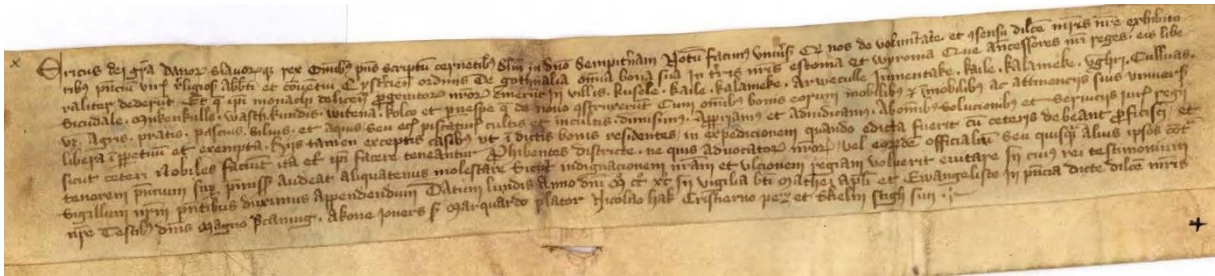 Ericus dei gra Danor slavorqz rex Omibz pns scriptu cernetibz Slm in dno Sempitnam Notu facimus vniuſ Qd nos de voluntate et 9sensu dilce mris nre exhibito
ribus pncium viris religios Abbti et couetui Cystercien ordinis de gothlandia omia bona sua in tris nris estonia et wyronia Que ancessores nri reges eis libe
raliter dederut Et q ipi monachi de licencia progenitor nror emerut in villis kusele kaile kalameke arweculle Jumentake kaile kalameke vghri Culluas
Sicudale Mikenkulle wasthkundis witena kolco et puespe q de nouo astruxerut Cum omibus bonis eorum mobilibus et imobilibus ac attinenciis suis vniuersis
vz agris pratis pascuis siluis et aquis seu eciam piscaturis cultis et incultis dimisimus Appriamus et adiudicamus Ab omibus solucionibus et seruiciis iuri regii
libera i ppetuum et exempta Hiis tamen exceptis casibus ut i dictis bonis residentes in expedicionem quando edicta fuerit cu ceteris debeant pficisci et
sicut ceteri nobiles faciut ita et ipi facere teneantur Phibentes districte ne quis aduocator nror vel eorude officialiu seu quisq alius ipsos cot
tenorem pncium sup pmiss audeat aliquatenus molestare sicut indignacionem nram et vlcionem regiam voluerit euitare In cuius rei testimonium
Sigillum nrm pntibus duximus appendendum Datum lundis Anno dni M CC XC In vigilia bti Mathei apli et Ewangeliste In pncia dicte dilce mris
nre Testibz dnis Magno Akone Jonerss Marquardo plator Nicolao hak Cristierno et